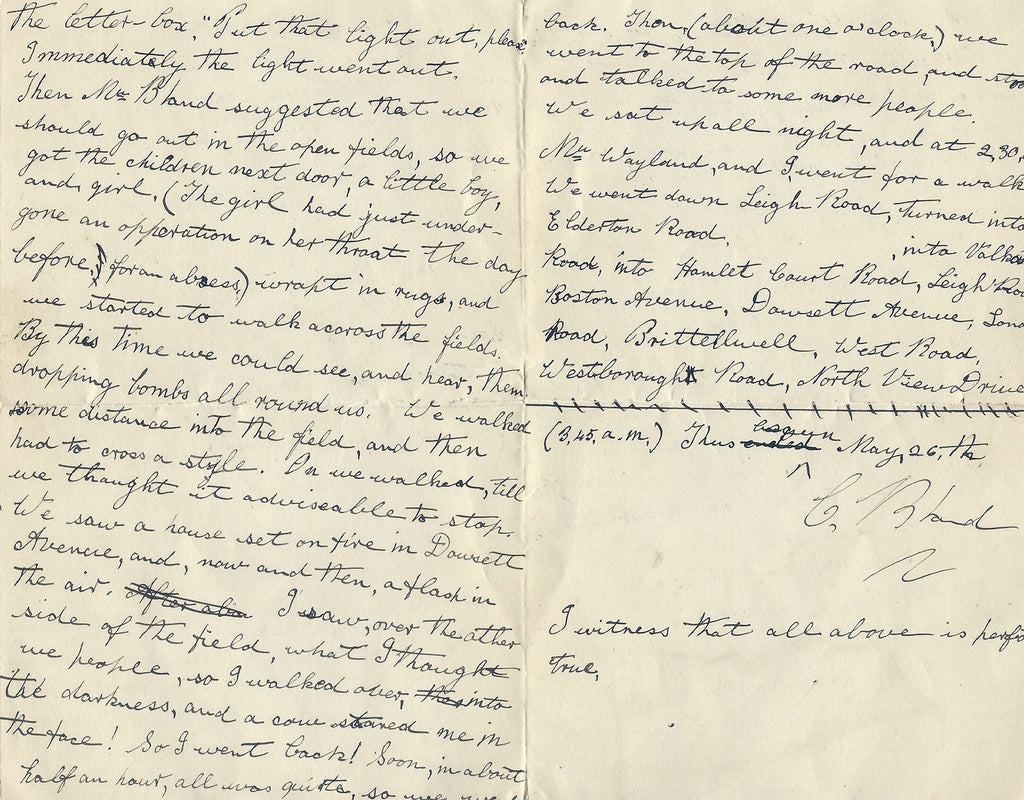 the letter-box, "Put that light out, please
Immediately the light went out.
Then Mrs Bland suggested that we
should go out in the open fields, so we
got the children next door, a little boy,
and, girl, (The girl had just under-
gone an opperation on her throat the day
before, for an abcess,) wrapt in rugs, and
we started to walk acorss the fields.
By this time we could see, and hear, them
dropping bombs all round us. We walked
some distance into the field, and then
had to cross a style. On we walked, till
we thought it adviseable to stop.
We saw a house set on fire in Dowsett
Avenue, and, now and then, a flash in
the air. After I saw, over the other
side of the field, what I thought
we people, so I walked over, into
the darkness, and a cow stared me in
the face! So I went back! Soon, in about
half an hour, all was quite, so we
back. Then, (about one o'clock,) we
went to the top of the road, and stoo
and talked to some more people.
We sat up all night, and at 2,30,
Mrs Wayland, and I, went for a walk
We went down Leigh Road, turned into
Elderton Road, , into Valk
Road, into Hamlet Court Road, Leigh Roa
Boston Avenue, Dowsett Avenue, Lond
Road, Brittellwell, West Road,
Westborough Road, North View Drive
(3,45, a.m.) Thus ended begun May, 26, th
C. Bland
I witness that all above is perfe
true,